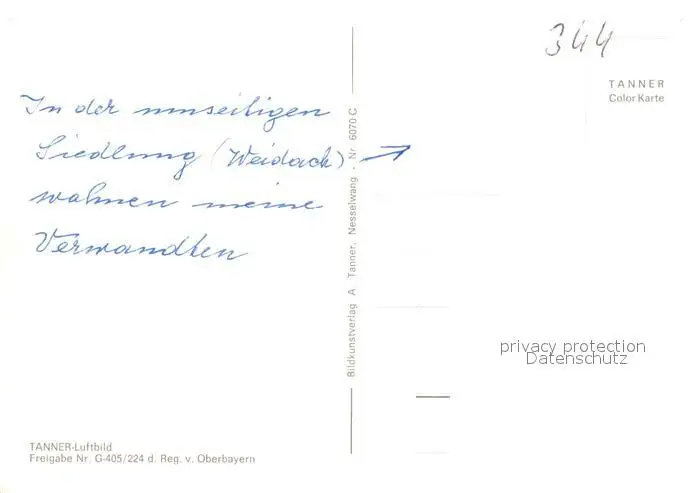 344
TANNER
Color Karte
In der umseitigen
Siedlung (Weidach) →
wohnen meine
Verwandten
Bildkunstverlag A Tanner, Nesselwang . Nr. 6070 C
privacy protection
Datenschutz
TANNER-Luftbild
Freigabe Nr. G-405/224 d. Reg. v. Oberbayern